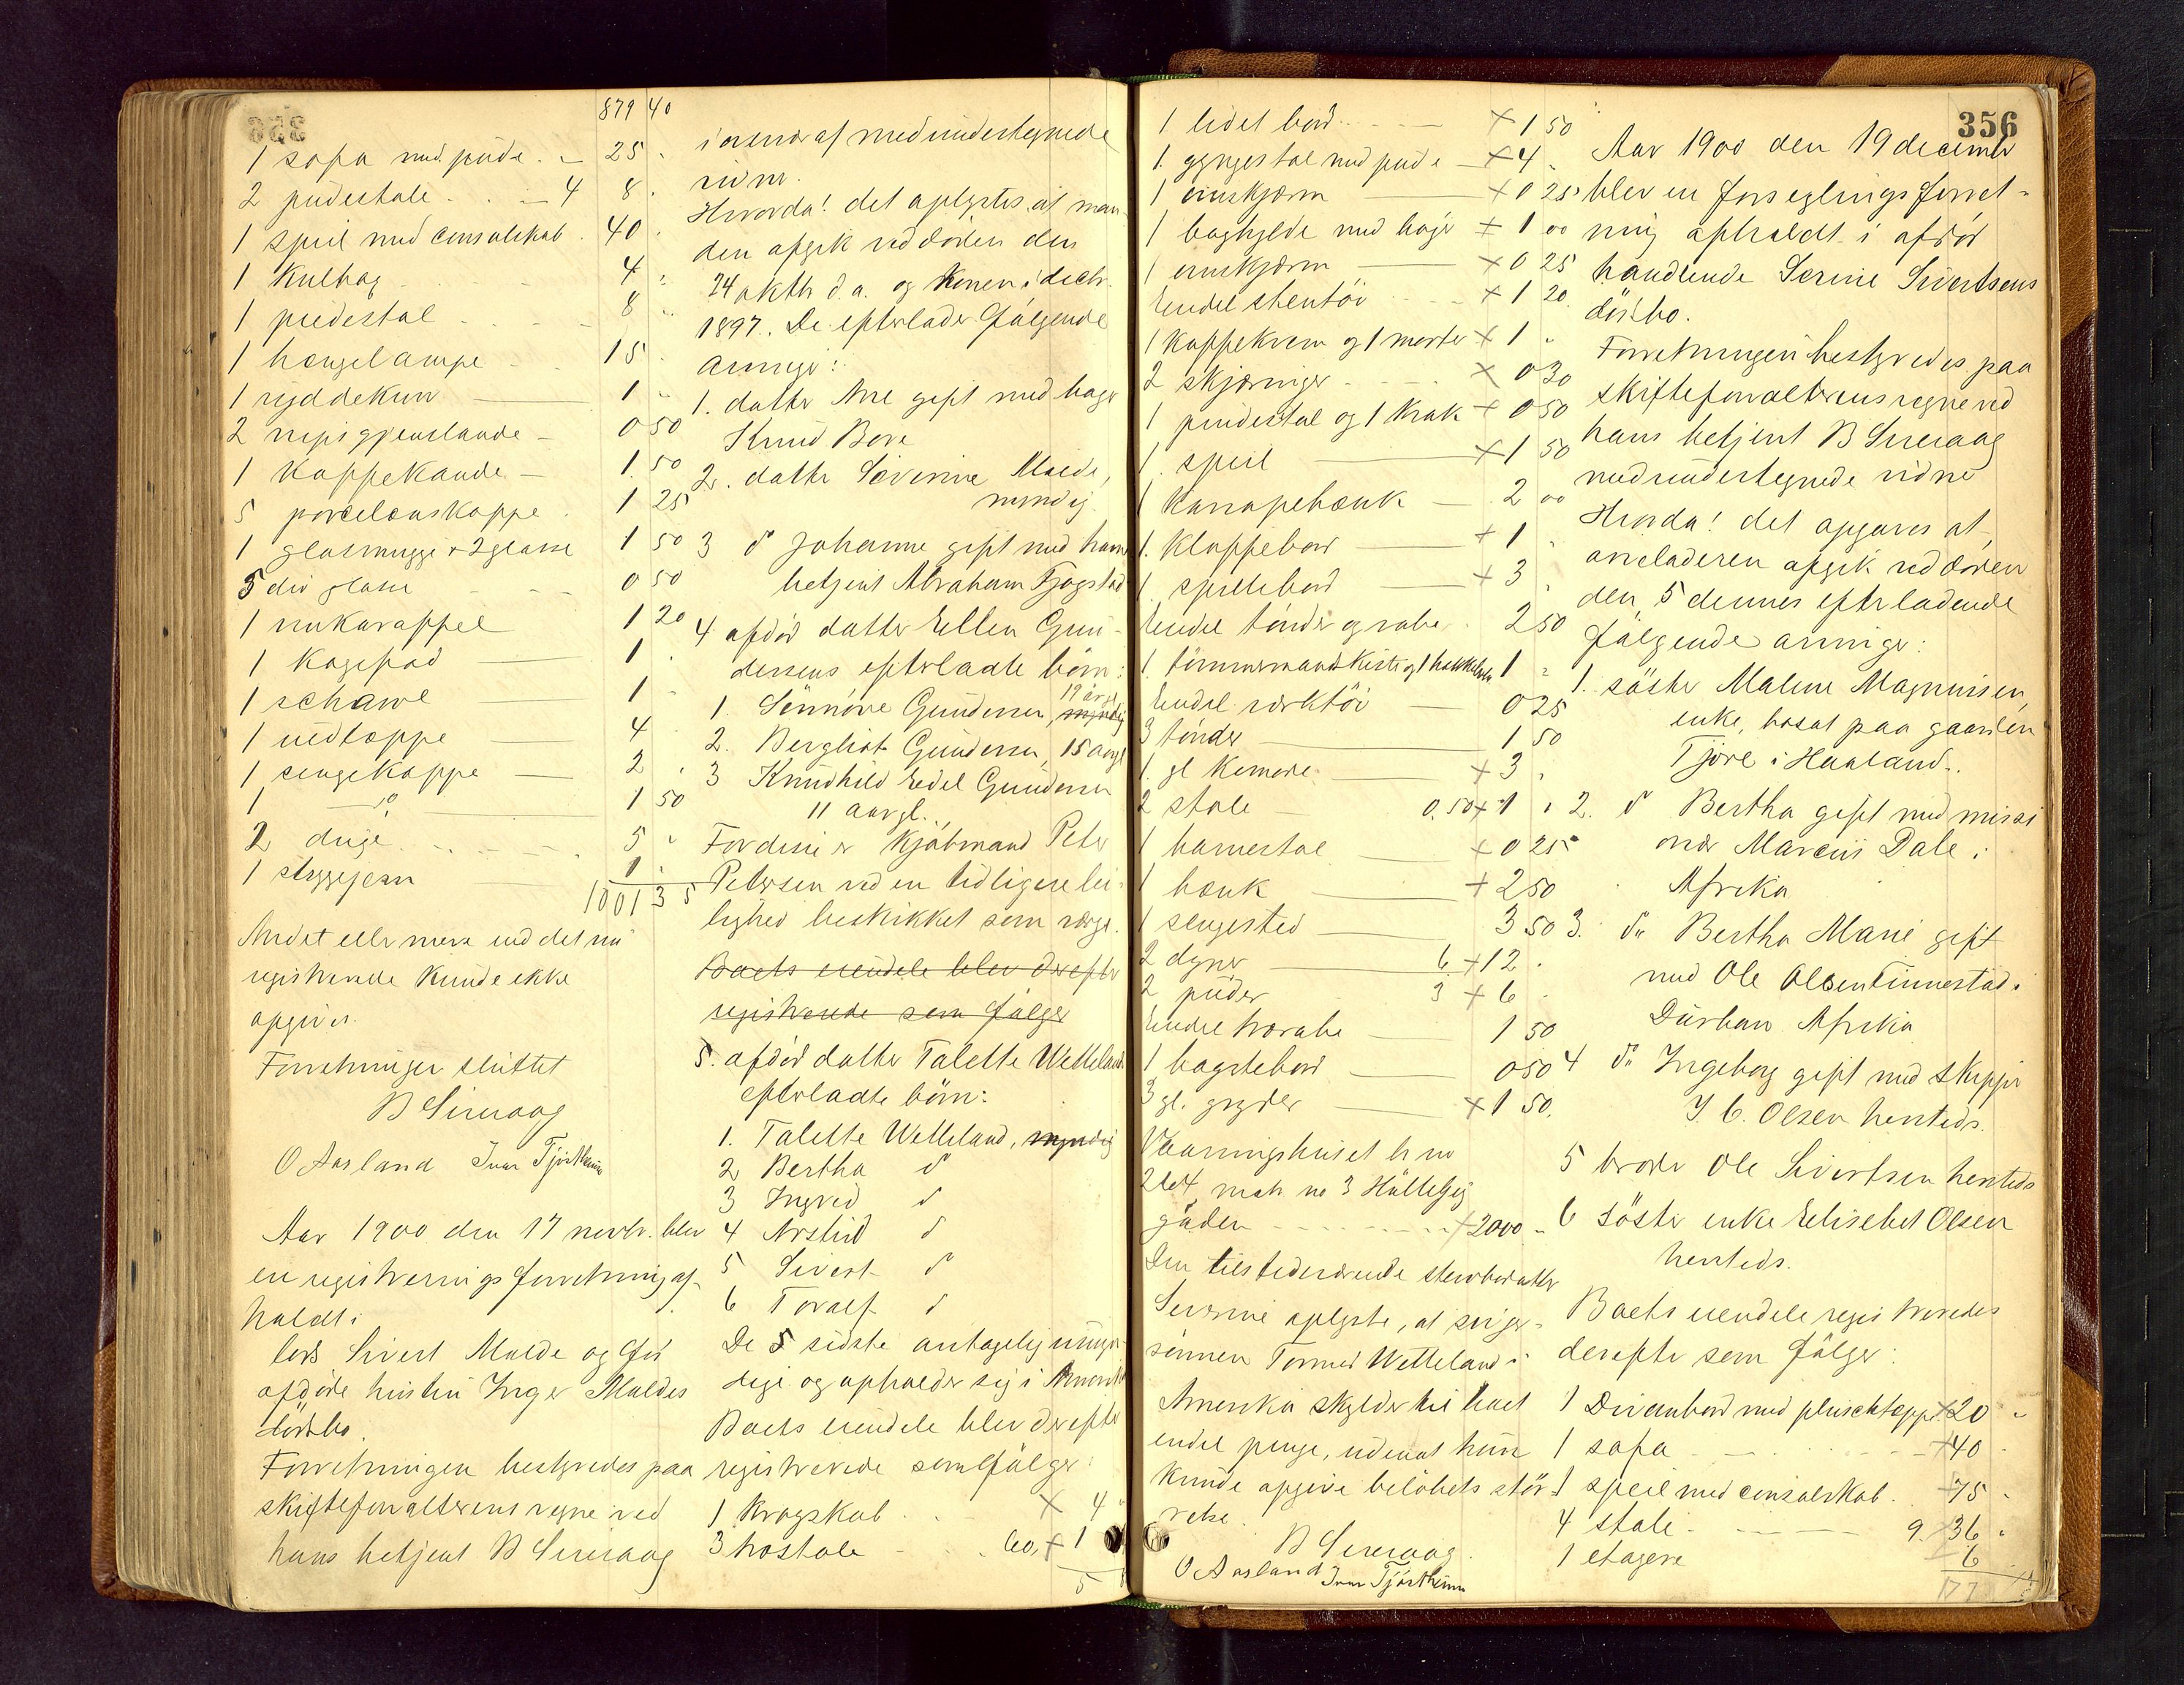 879 40
1 sofa med pude. - 25 "
2 pudestole . . - 4 8 "
1 speil med consolskab . 40 "
1 Kulbox 4 "
1 piedestal 8 "
1 hængelampe 15 "
1 1 "
2 nipsgjenstande - 0 50
1 Kaffekande - 1 50
5 porcelænskoppe . 1 25
1 glasmugge & 2 glasse 1 50
5 div glasse 0 50
1 1 20
1 Kagefad 1 "
1 schawl 1 "
1 uldtæppe 4 "
1 sengetæppe 2 "
1 do 1 50
2 duge 5 "
1 strygejern 1 "
1001 35
Andet eller mere end det nu
registrerede kunde ikke
opgives.
Forretningen sluttet
B Sirevaag
O Aasland Ivar Tjøstheim
Aar 1900 den 17 novbr. blev
en registreringsforretning af-
holdt i
lods Sivert Molde og før
afdøde hustru Inger Moldes
dødsbo.
Forretningen bestyredes paa
skifteforvalterens vegne ved
hans betjent B Sirevaag
i overvær af medundertegnede
vidner.
Hvorda! det oplystes, at man-
den afgik ved døden den
24 oktbr d.a. og konen i decbr.
1897. De efterlader følgende
arvinger:
1. datter Ane gift med bager
Knud Bore
2. datter Severine Molde,
myndig.
3 do Johanne gift med
betjent Abraham Fjogstad
4 afdød datter Ellen Gun-
dersens efterladte børn:
1. Sennøve Gundersen, myndig 19 aar gl
2. Bergliot Gundersen, 15 aargl
3 Knudhild Edel Gundersen
11 aar gl.
For disse er Kjøbmand Peter
Petersen ved en tidligere lei-
lighed beskikket som værge.
Boets eiendele blev derefter
registrerede som følger
5. afdød datter Talette Wetteland
efterladte børn:
1. Talette Wetteland, myndig
2 Bertha do
3 Ingvid do
4 Arstid do
5 Sivert do
6 Toralf do
De 5 sidste antagelig umyn-
dige og opholder sig i Amerika
Boets eiendele blev derefter
registrerede som følger:
1 Kragskab . . x 4 "
3 træstole - . 60, x 1
5
356
1 lidet bord x 1 50
1 gyngestol med pude - x 4 "
1 ovnskjærm x 0 25
1 boghylde med bøger x 1 00
1 ovnskjærm x 0 25
Endel stentøi x 1 20
1 kaffekvern og 1 morter x 1 "
2 skjæringer x 0 30
1 pindestol og 1 krak x 0 50
1. speil x 1 50
1 kanapebænk 2 00
1. klappebord x 1 "
1. spillebord x 3 "
Endel tønder og rabe 2 50
1. tømmermandskiste og 1 1 "
Endel værktøi 0 25
3 tønder 1 50
1. gl komode x 3 "
2 stole 0,50 x 1 "
1 barnestol x 0 25
1 bænk x 2 50
1 sengested 3 50
2 dyner 6. x 12 "
2 puder 3 x 6 "
Endel trærabe 1 50
1 bagstebord 0 50
3 gl. gryder x 1 50
Vaaningshuset br no
264, matr no 3
gaden x 2000 "
Den tilstedeværende stervbodatter
Severine oplyste, at sviger-
sønnen Tormod Wetteland i
Amerika skylder til boet
endel penge, uden at hun
kunde opgive beløbets stør-
relse.
B Sirevaag.
O Aasland Ivar Tjøstheim
Aar 1900 den 19 december
blev en forseglingsforret-
ning afholdt i afdød
handlende Serine Sivertsens
dødsbo.
Forretningen bestyredes paa
skifteforvalterens vegne ved
hans betjent B Sirevaag
med undertegnede vidner
Hvorda! det opgaves at
arveladeren afgik ved døden
den 5 dennes efterladende
følgende arvinger:
1. søster Malene Magnussen,
enke, bosat paa gaarden
Tjore i Haaland.
2. do Bertha gift med missi
onær Marcus Dale i
Afrika
3. do Bertha Marie gift
med Ole Olsen Finnestad i
Durban Afrika
4 do Ingeborg gift med skipper
J. C. Olsen herteds.
5 broder Ole Sivertsen herteds
6 søster enke Elisebet Olsen
herteds.
Boets eiendele registreredes
derefter som følger:
1 Divanbord med pluschtæppe x 20 "
1 sofa x 40 "
1 speil med consolskab . x 75 "
4 stole . 9 x 36 "
1 etagere x 6
177